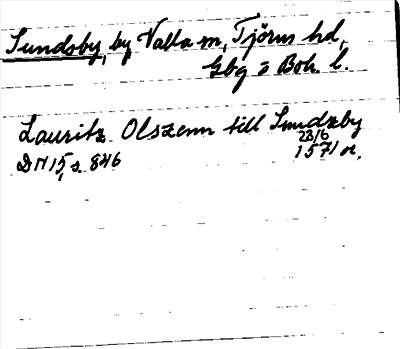 Sundsby, by Valla sn, Tjörns hd,
Gbg o Boh. l.
Lauritz Olszenn till Sundzby
23/6
DN 15, s. 846 1571 or.